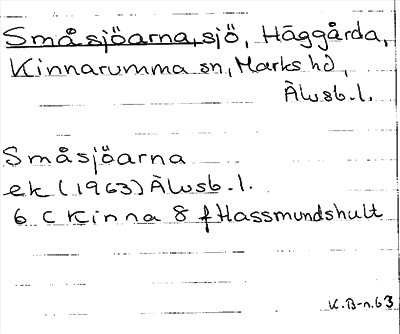 Småsjöarna, sjö, Häggårda,
Kinnarumma sn, Marks hd,
Älvsb. l.
Småsjöarna
ek (1963) Älvsb. l.
6 C Kinna 8 f Hassmundshult
K.B-n.63